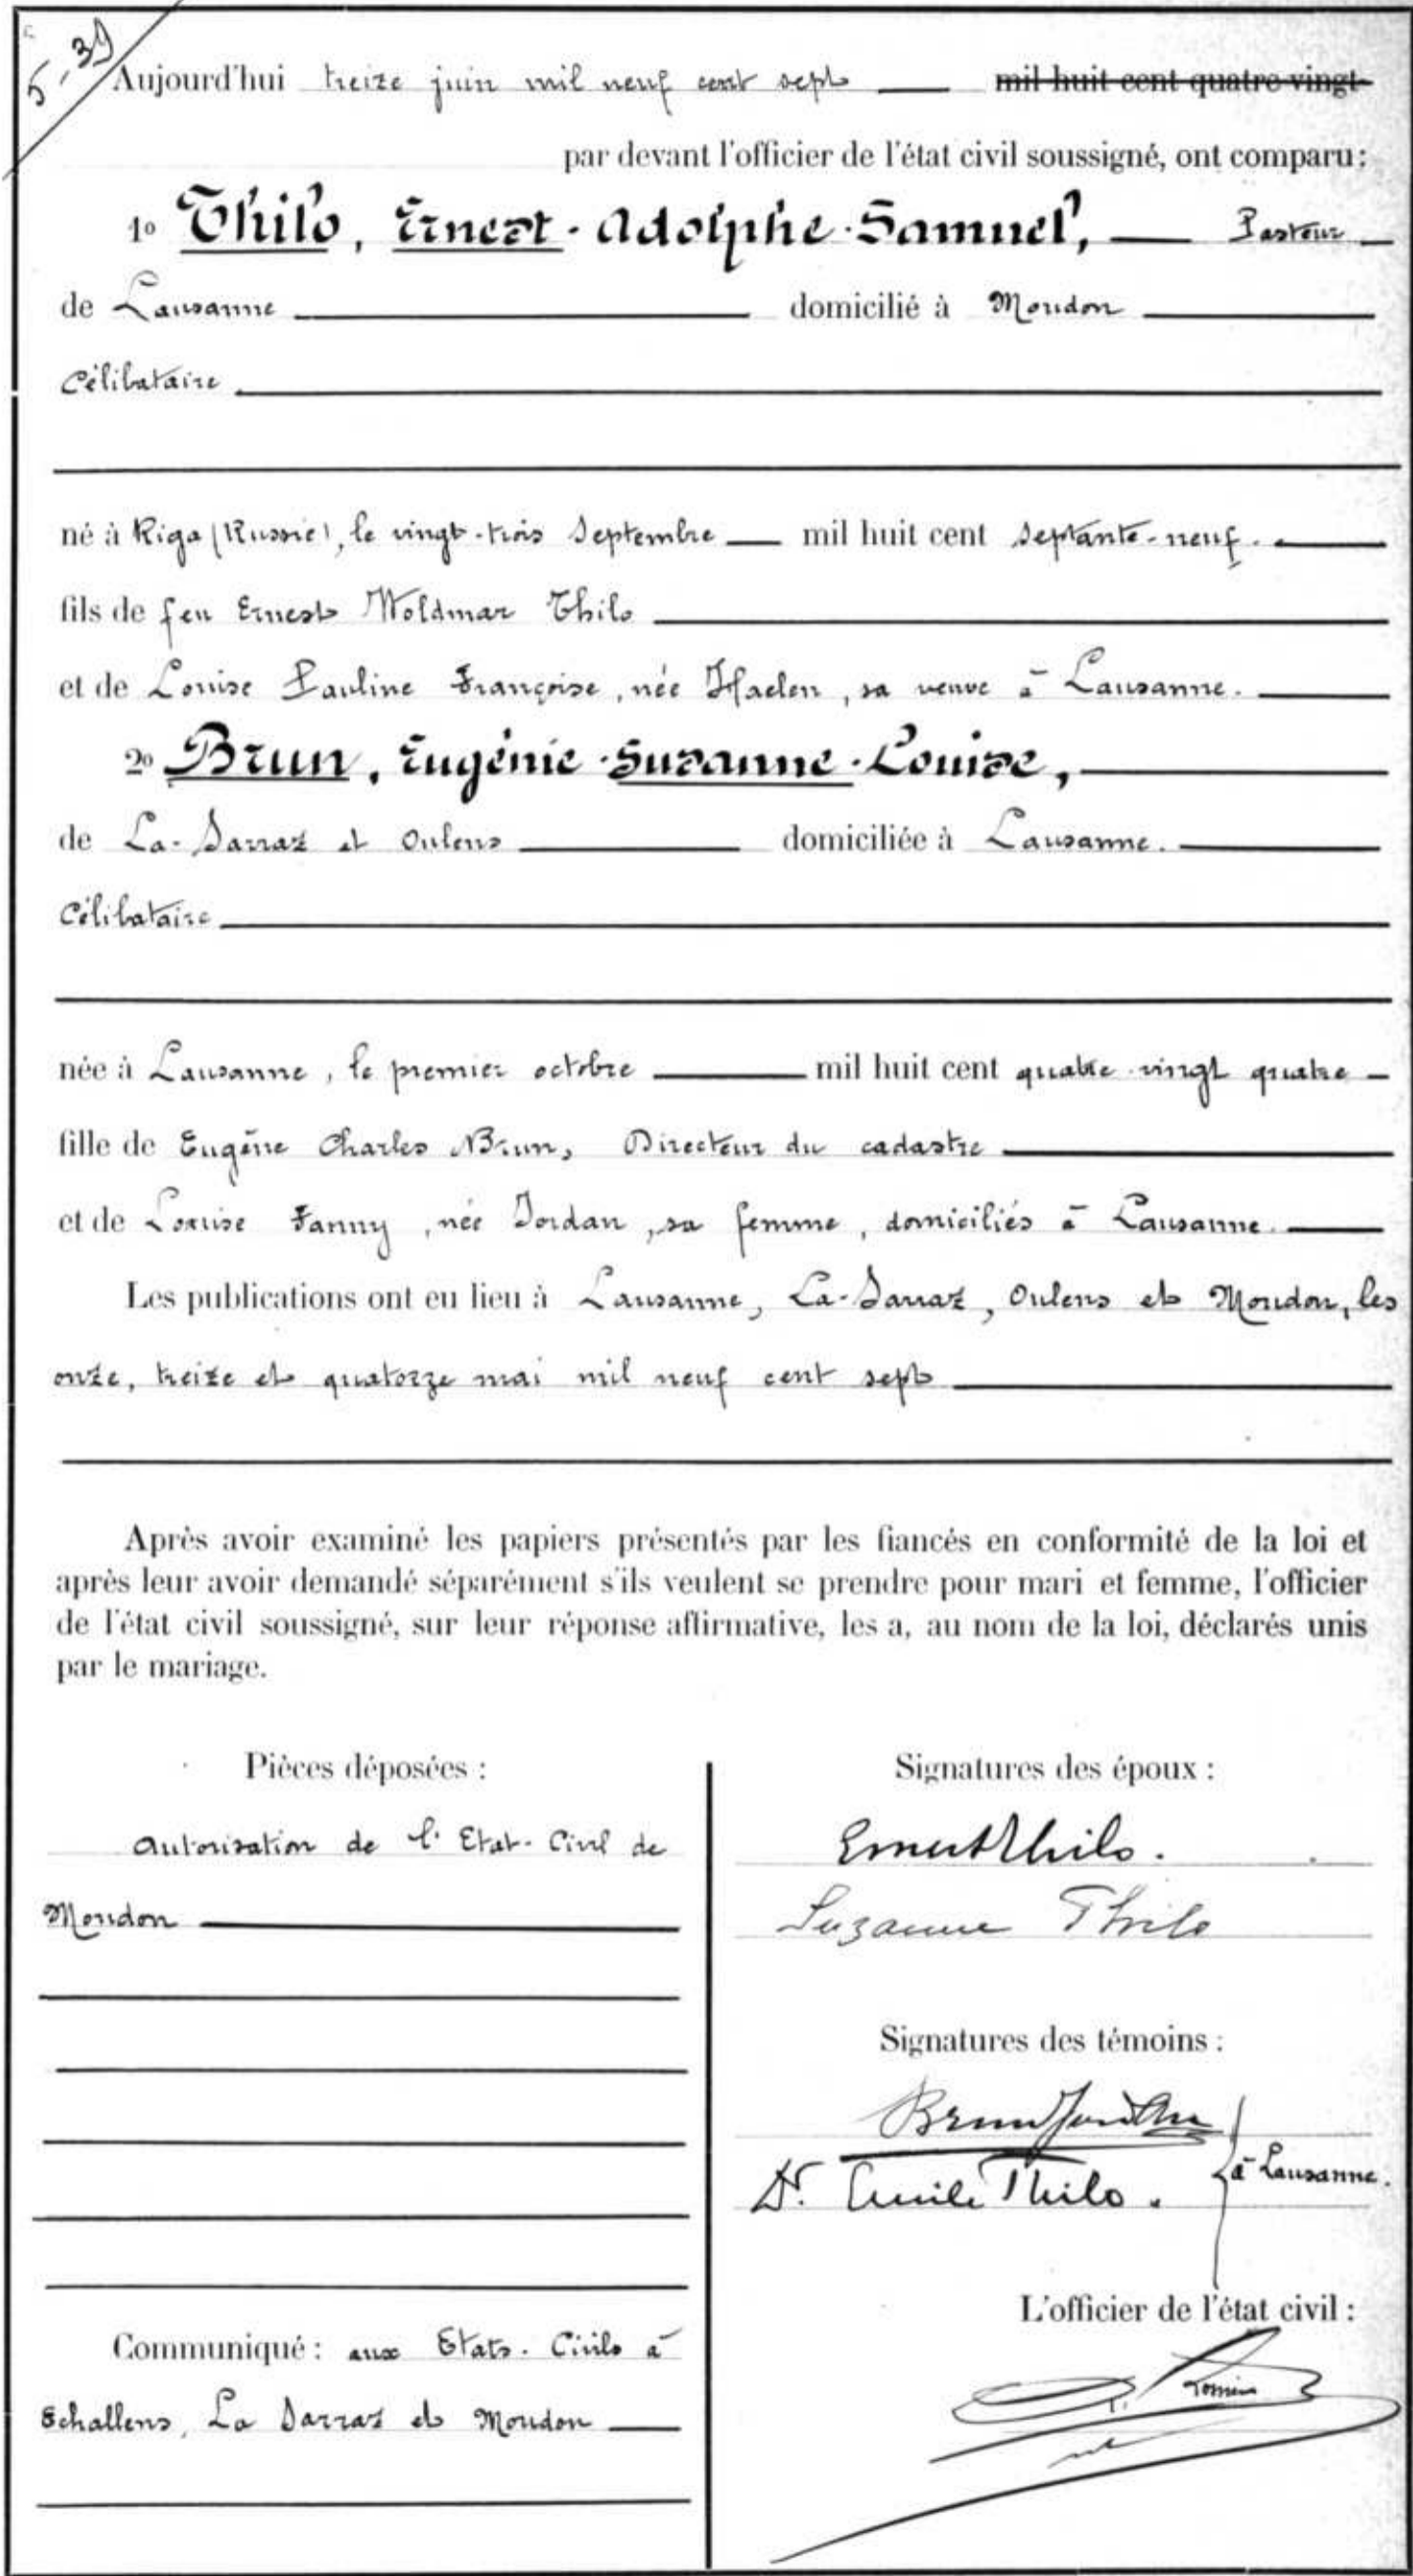 5-39
Aujourd'hui treize juin mil neuf cent sept mil huit cent quatre-vingt
par devant l'officier de l'état civil soussigné, ont comparu :
1º Thilo, Ernest-Adolphe-Samuel, Pasteur
de Lausanne domicilié à Moudon
Célibataire
né à Riga (Russie), le vingt-trois Septembre mil huit cent septante-neuf.
fils de feu Ernest Woldmar Thilo
et de Louise Pauline Françoise, née Haelen, sa veuve à Lausanne.
2º Brun, Eugénie-Suzanne-Louise,
de La-Sarraz et Oulens domiciliée à Lausanne.
Célibataire
née à Lausanne, le premier octobre mil huit cent quatre-vingt quatre
fille de Eugène Charles Brun, Directeur du cadastre
et de Louise Fanny, née Jordan, sa femme, domiciliés à Lausanne.
Les publications ont eu lieu à Lausanne, La-Sarraz, Oulens et Moudon, les
onze, treize et quatorze mai mil neuf cent sept
Après avoir examiné les papiers présentés par les fiancés en conformité de la loi et
après leur avoir demandé séparément s'ils veulent se prendre pour mari et femme, l'officier
de l'état civil soussigné, sur leur réponse affirmative, les a, au nom de la loi, déclarés unis
par le mariage.
Pièces déposées :
Autorisation de l'Etat-Civil de
Moudon
Communiqué : aux Etats-Civils à
Echallens, La Sarraz et Moudon
Signatures des époux :
Ernest Thilo.
Suzanne Thilo
Signatures des témoins :
Brun
Dr. Emile Thilo.
à Lausanne.
L'officier de l'état civil :